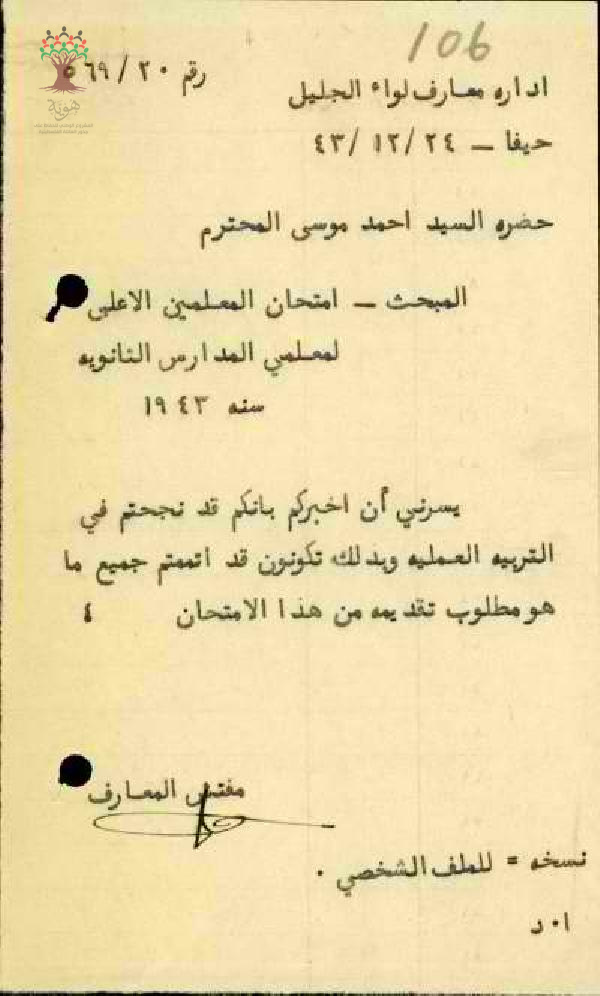 106
اداره معارف لواء الجليل
رقم ٥٦٩/٢٠
حيفا – ٤٣/١٢/٢٤
هوية
حضره السيد احمد موسى المحترم
المبحث – امتحان المعلمين الاعلى
لمعلمي المدارس الثانويه
سنه ١٩٤٣
يسرني أن اخبركم بانكم قد نجحتم في
التربيه العمليه وبذلك تكونون قد اتممتم جميع ما
هو مطلوب تقديمه من هذا الامتحان ٤
مفتش المعارف
نسخه = للملف الشخصي .
ا٠د